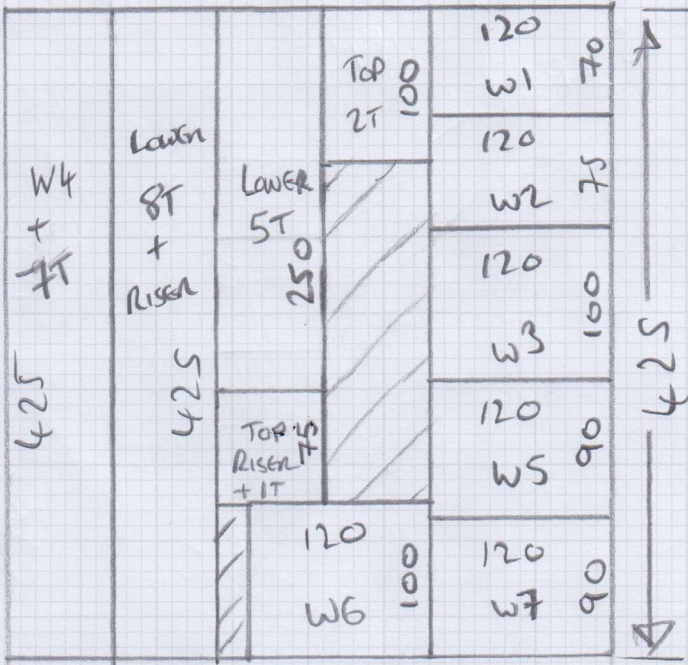 W4
+
7T
425
LOWER
8T
+
RISER
425
LOWER
5T
250
TOP
RISER
+ 1T
75
TOP
2T
100
120
W6
100
120
W1
70
120
W2
75
120
W3
100
120
W5
90
120
W7
90
425